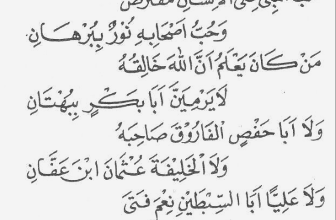 حُبُّ النَّبِيِّ عَلَى الْإِنْسَانِ مُفْتَرَضٌ
وَحُبُّ اَصْحَابِهِ نُوْرٌ بِبُرْهَانِ
مَنْ كَانَ يَعْلَمُ اَنَّ اللهَ خَالِقُهُ
لَا يَرْمِيَنَّ اَبَا بَكْرٍ بِبُهْتَانِ
وَلَا اَبَا حَفْصٍ الْفَارُوْقَ صَاحِبَهُ
وَلَا الْخَلِيْفَةَ عُثْمَانَ ابْنَ عَفَّانِ
وَلَا عَلِيًّا اَبَا السِّبْطَيْنِ نِعْمَ فَتَى